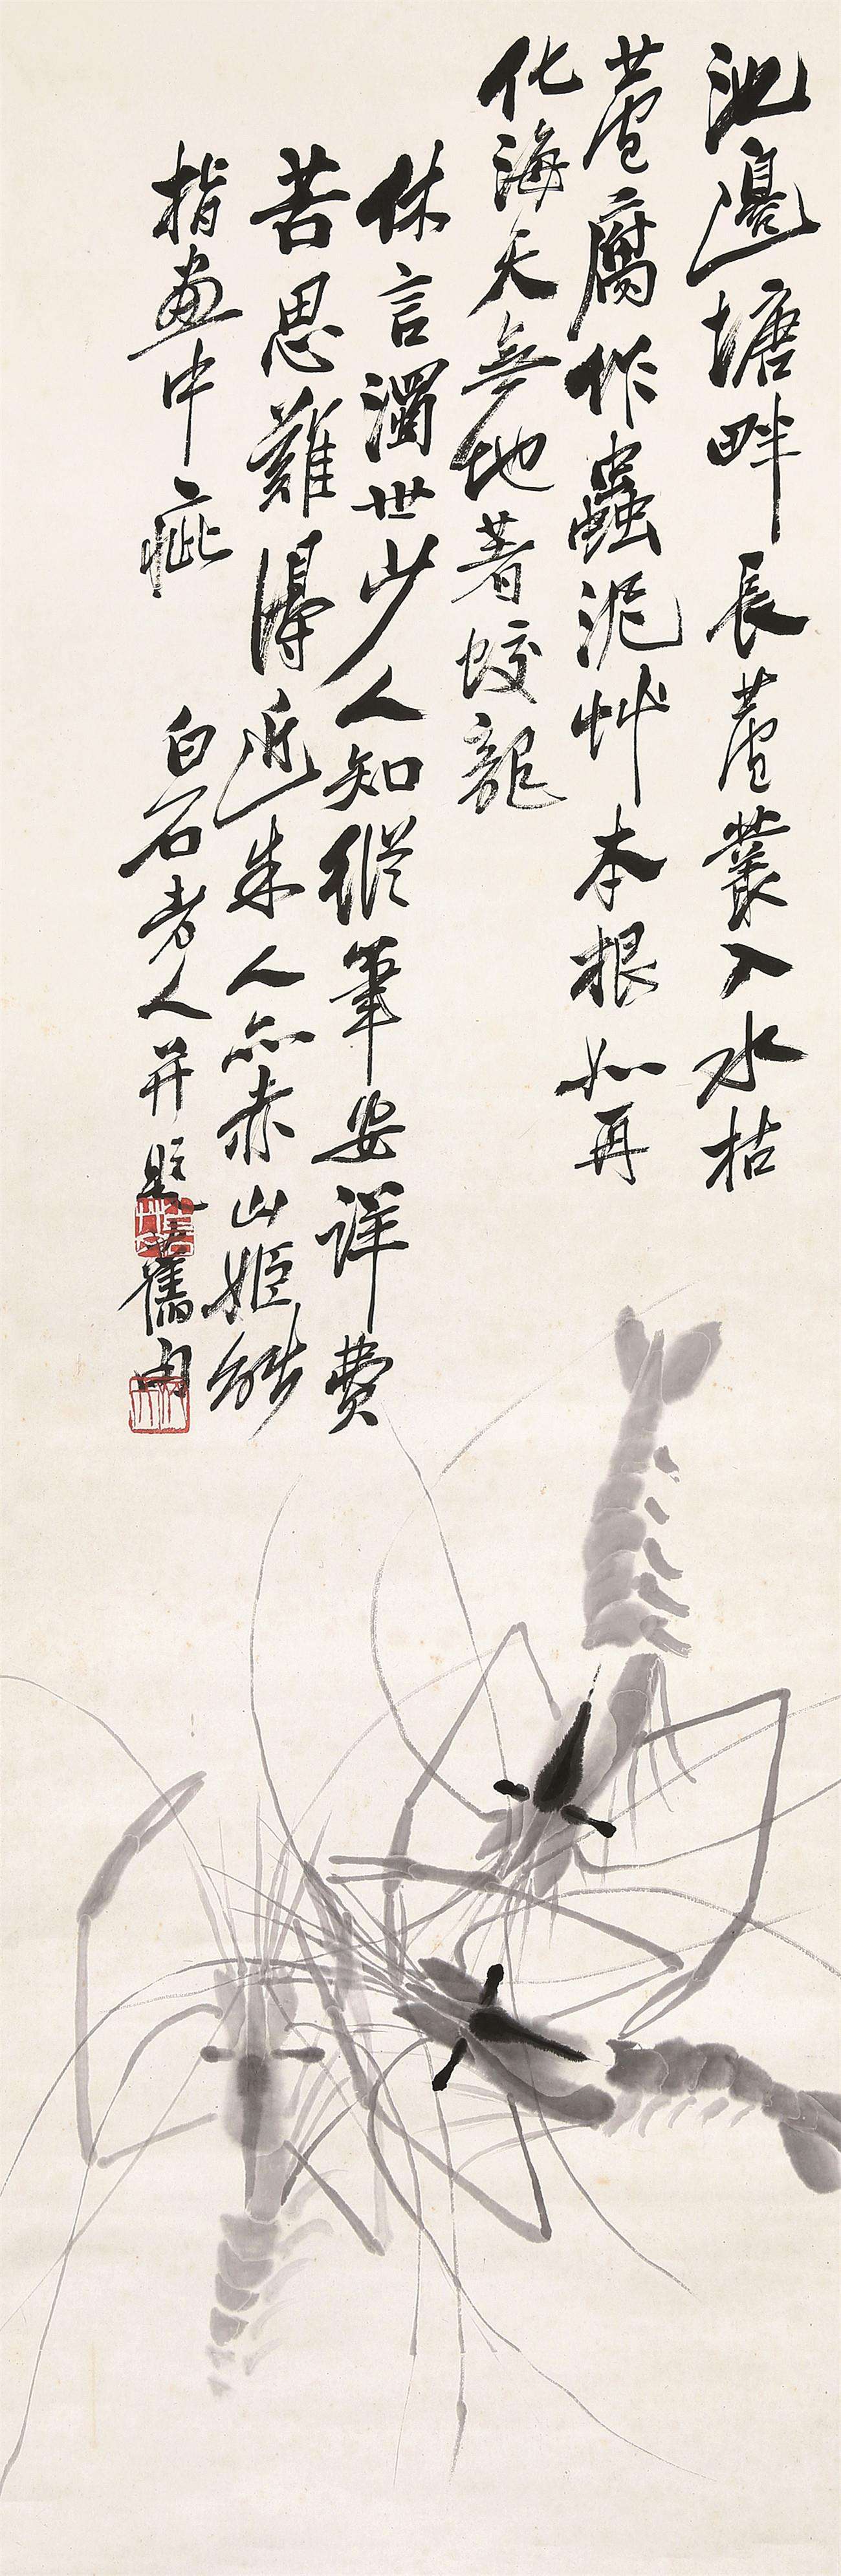 池邊塘畔長蘆叢入水枯
蘆腐作蟲泥艸本根如再
化海天無地著蛟龍
休言濁世少人知縱筆安詳費
苦思難得近朱人亦赤山姬能
指畫中疵
白石老人并題舊句
木人